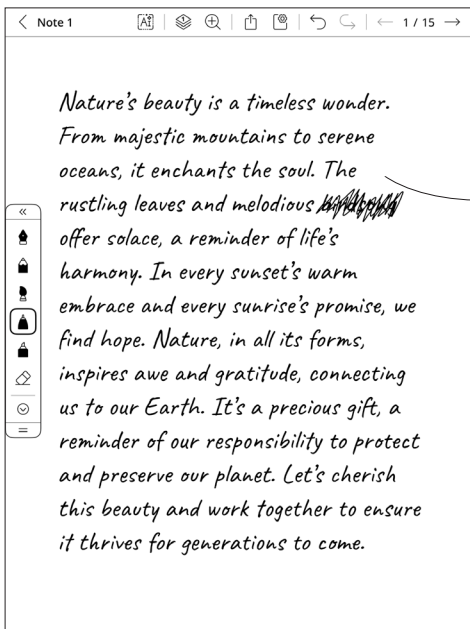 Note 1
1 / 15
Nature's beauty is a timeless wonder.
From majestic mountains to serene
oceans, it enchants the soul. The
rustling leaves and melodious
offer solace, a reminder of life's
harmony. In every sunset's warm
embrace and every sunrise's promise, we
find hope. Nature, in all its forms,
inspires awe and gratitude, connecting
us to our Earth. It's a precious gift, a
reminder of our responsibility to protect
and preserve our planet. Let's cherish
this beauty and work together to ensure
it thrives for generations to come.